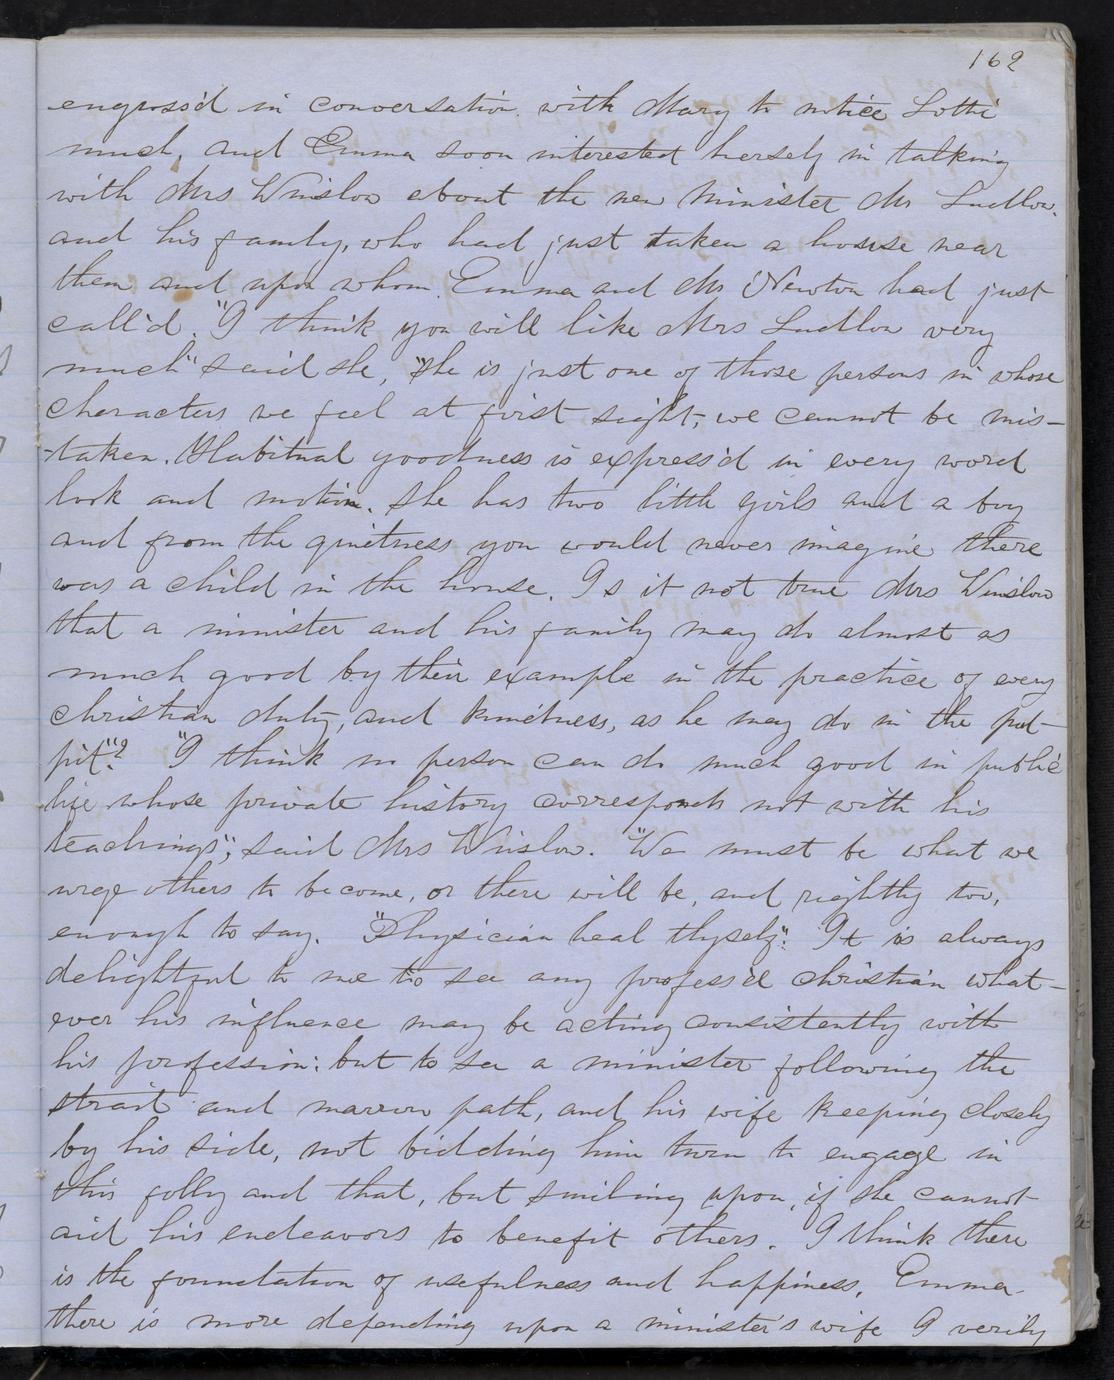 162
engross'd in conversation with Mary to notice Lotti
much, and Emma soon interested herself in talking
with Mrs Winslow about the new Minister Mr Ludlow.
and his family, who had just taken a house near
them and upon whom Emma and Mr Newton had just
call'd. "I think you will like Mrs Ludlow very
much" said she, "she is just one of those persons in whose
characters we feel at first sight, we cannot be mis-
-taken. Habitual goodness is express'd in every word
look and motion. She has two little girls and a boy
and from the quietness you would never imagine there
was a child in the house. Is it not true Mrs Winslow
that a minister and his family may do almost as
much good by their example in the practice of every
christian duty, and kindness, as he may do in the pul-
pit"? "I think no person can do much good in public
life whose private history corresponds not with his
teachings", said Mrs Winslow. "We must be what we
urge others to become, or there will be, and rightly too,
enough to say. "Physician heal thyself". It is always
delightful to me to see any profess'd christian what-
ever his influence may be acting consistently with
his profession: but to see a minister following the
strait and narrow path, and his wife keeping closely
by his side, not bidding him turn to engage in
this folly and that, but smiling upon, if she cannot
aid his endeavors to benefit others. I think there
is the foundation of usefulness and happiness, Emma.
there is more depending upon a minister's wife I verily